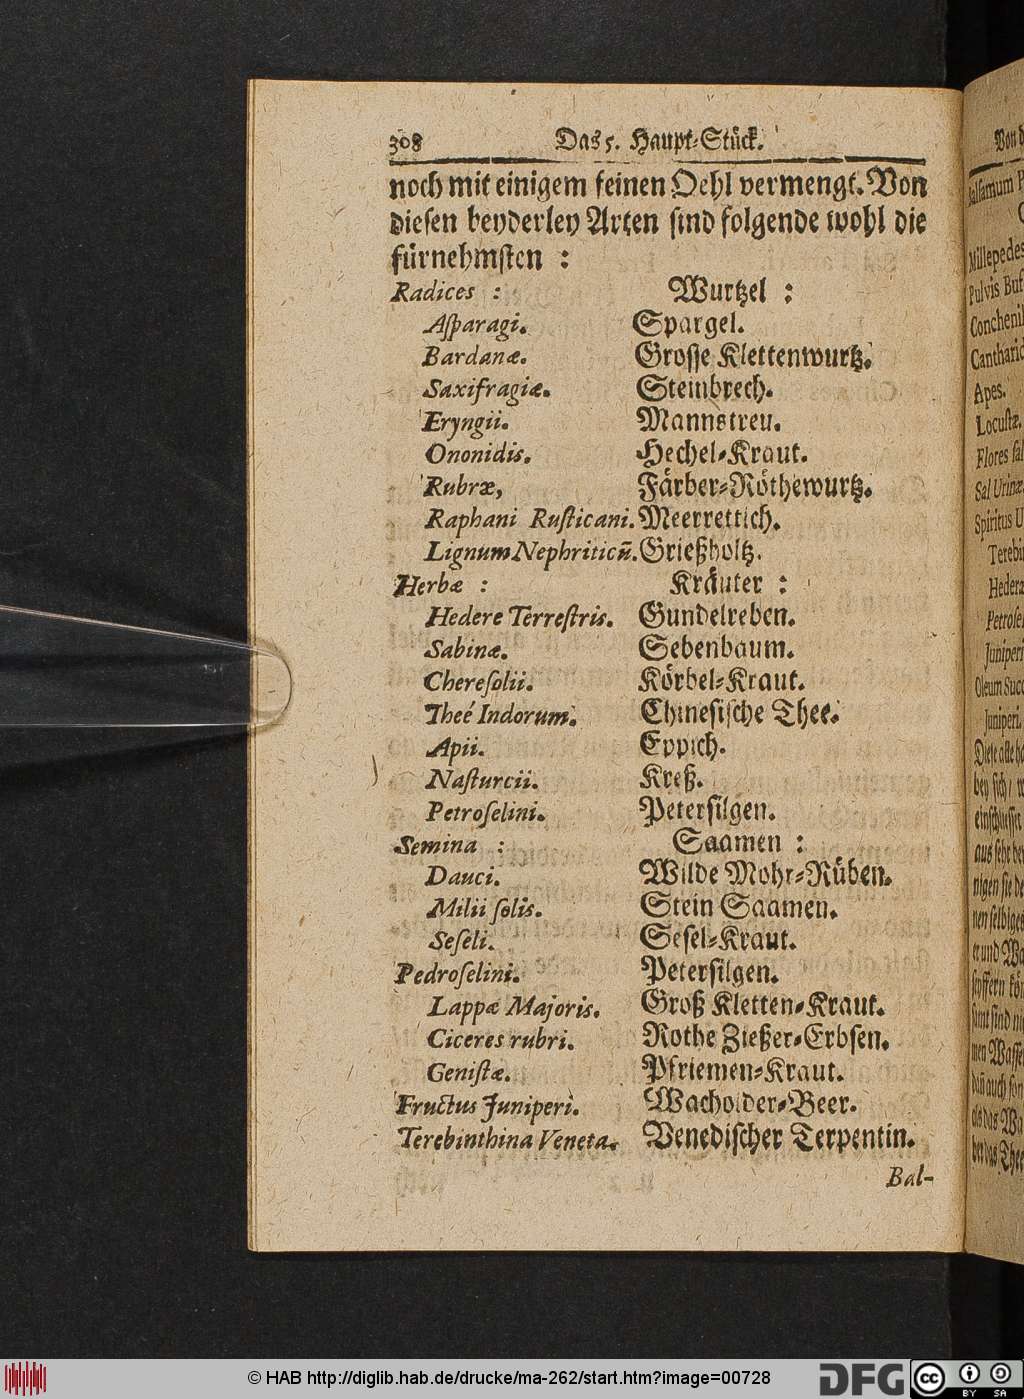 308 Das 5. Haupt-Stück.
noch mit einigem feinen Oehl vermengt. Von
diesen beyderley Arten sind folgende wohl die
fürnehmsten :
Radices : Wurtzel :
Aſparagi. Spargel.
Bardanæ. Grosse Klettenwurtz.
Saxifragiæ. Steinbrech.
Eryngii. Mannstreu.
Ononidis. Hechel-Kraut.
Rubræ, Färber-Röthewurtz.
Raphani Ruſticani. Meerrettich.
Lignum Nephriticū. Grießholtz.
Herbæ : Kräuter :
Hedere Terreſtris. Gundelreben.
Sabinæ. Sebenbaum.
Chereſolii. Körbel-Kraut.
Theé Indorum. Chinesische Thee.
Apii. Eppich.
Naſturcii. Kreß.
Petroſelini. Petersilgen.
Semina : Saamen :
Dauci. Wilde Mohr-Rüben.
Milii ſolis. Stein Saamen.
Seſeli. Sesel-Kraut.
Pedroſelini. Petersilgen.
Lappæ Majoris. Groß Kletten-Kraut.
Ciceres rubri. Rothe Zießer-Erbsen.
Geniſtæ. Pfriemen-Kraut.
Fructus Juniperi. Wacholder-Beer.
Terebinthina Veneta. Venedischer Terpentin.
Bal-
Von
Millepedes
Pulvis Buf
Conchenil
Cantharid
Apes.
Locuſtæ.
Flores ſal
Sal Urinæ.
Spiritus U
Terebi
Hedera
Petroſel
Juniperi
Oleum Succ
Juniperi.
© HAB http://diglib.hab.de/drucke/ma-262/start.htm?image=00728
DFG
CC BY SA